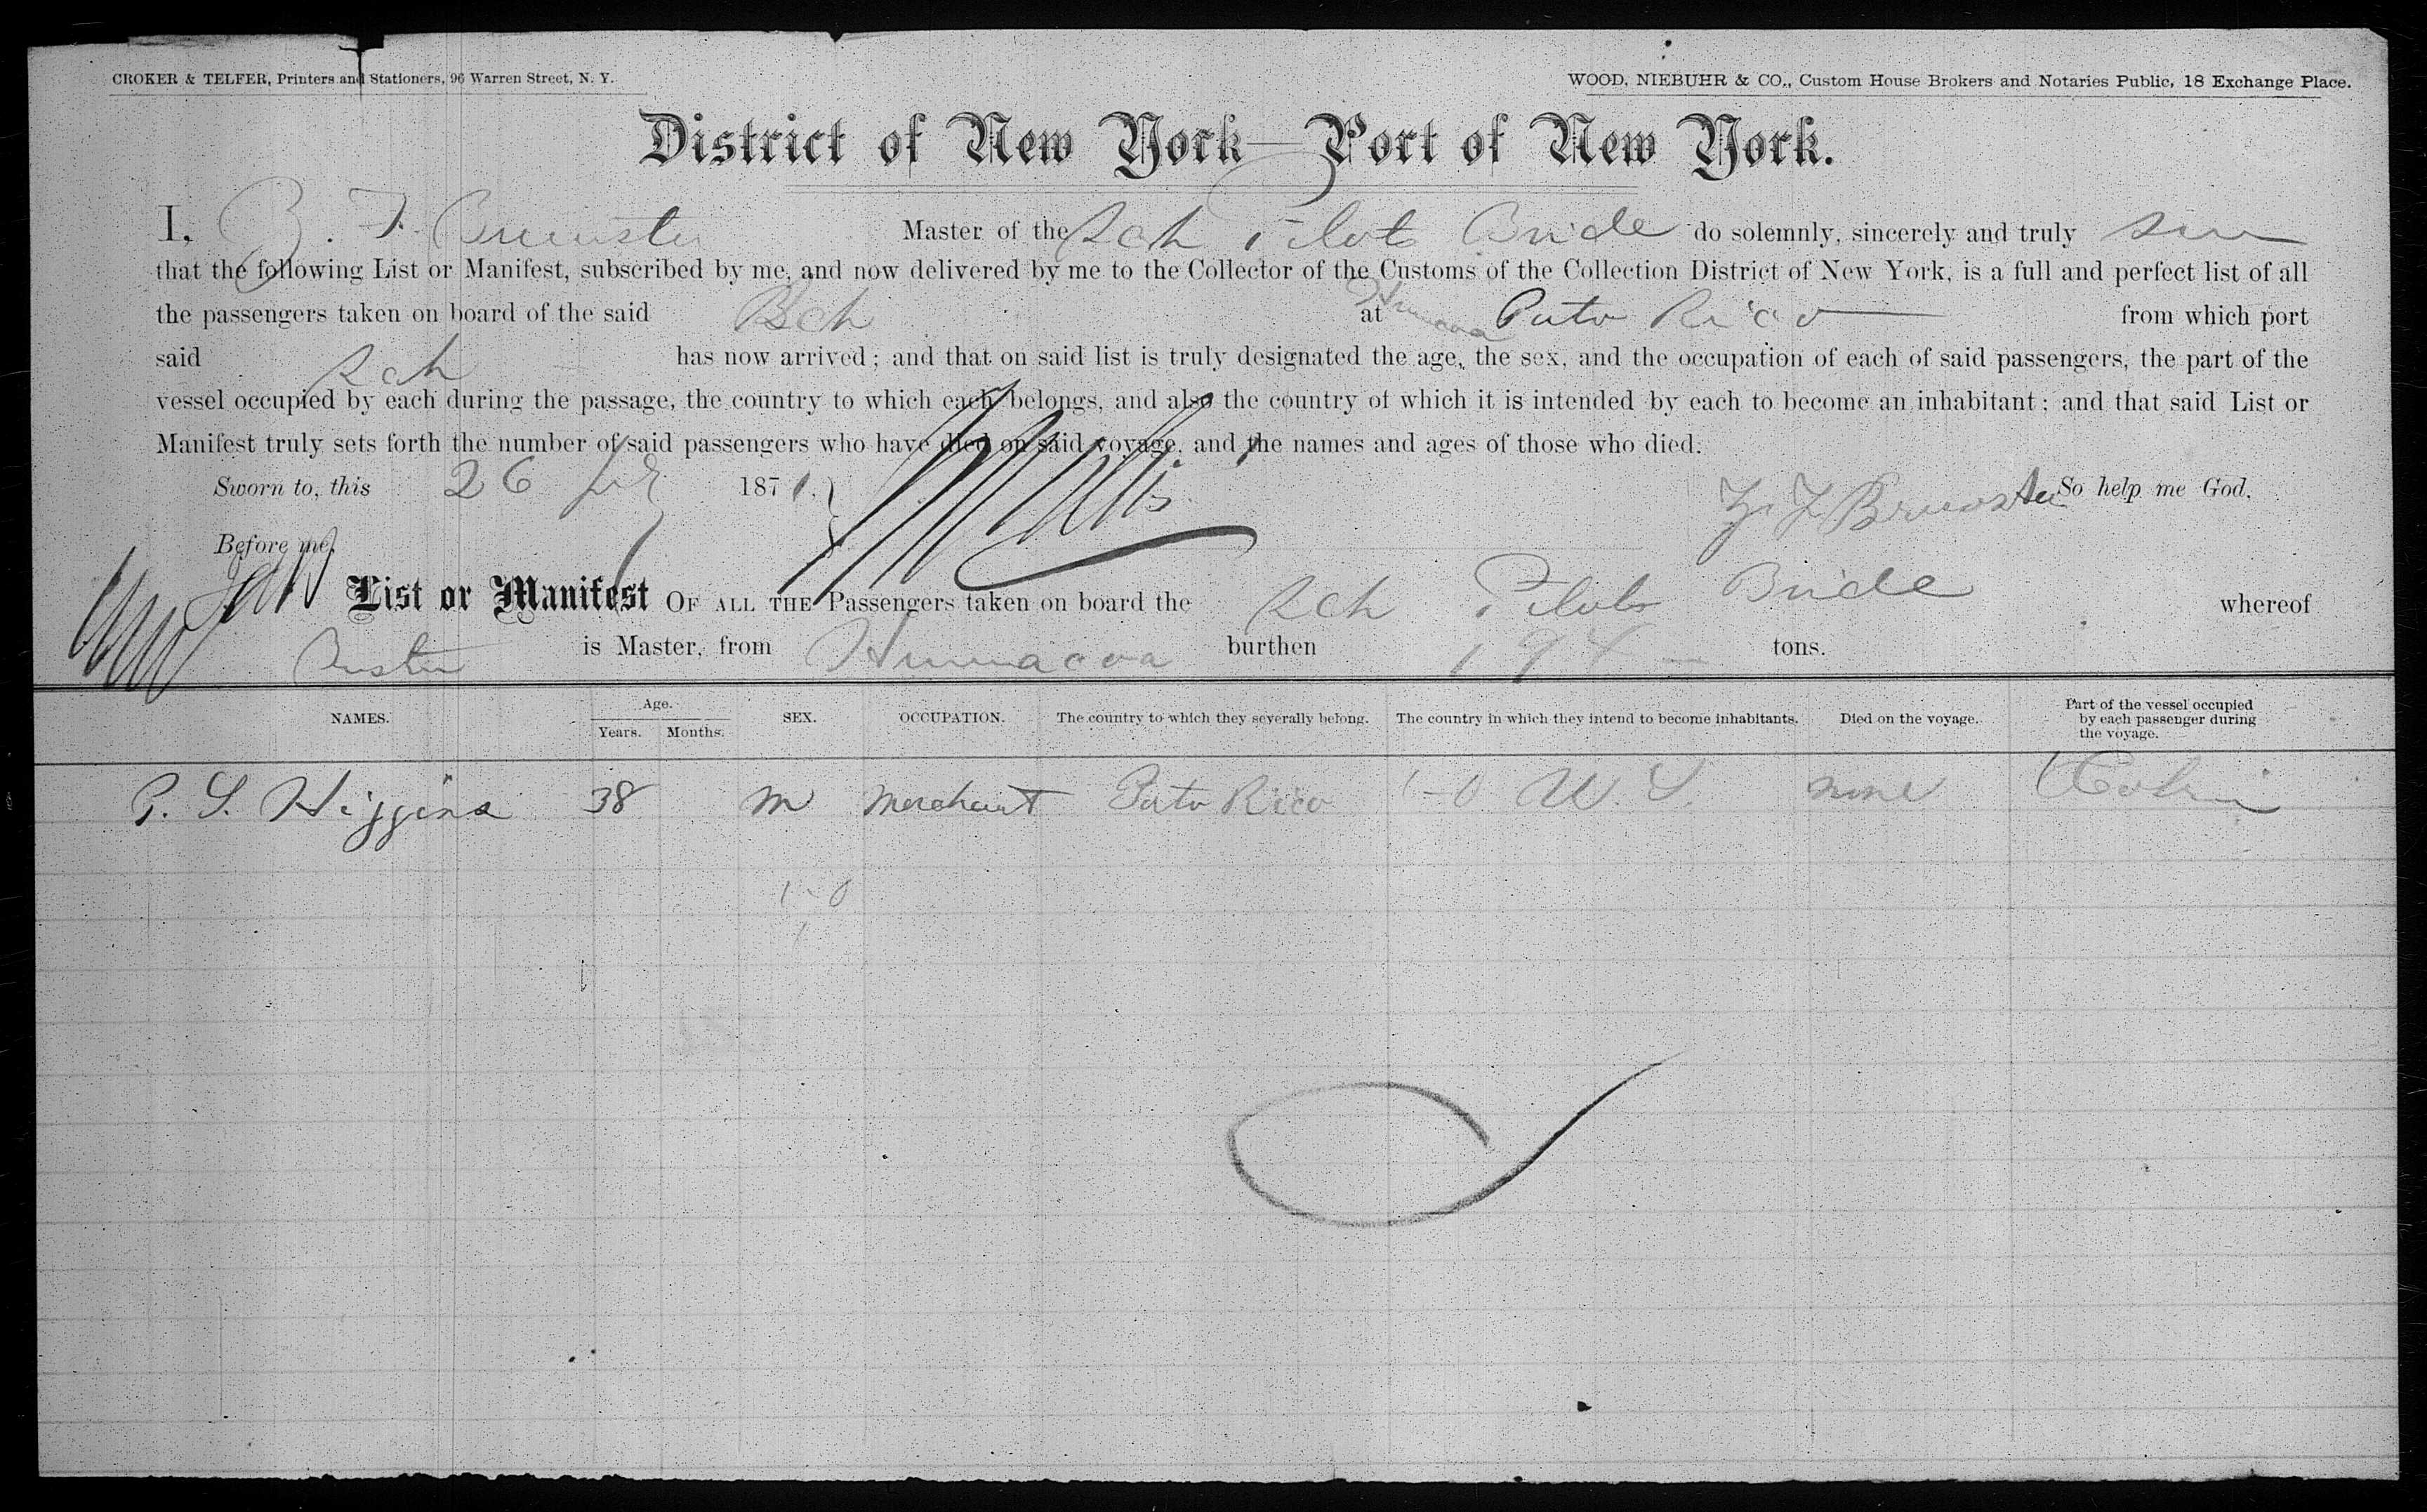 CROKER & TELFER, Printers and Stationers, 96 Warren Street, N. Y.
WOOD, NIEBUHR & CO., Custom House Brokers and Notaries Public, 18 Exchange Place.
District of New York—Port of New York.
I, B. F. Brewster Master of the Sch Pilots Bride do solemnly, sincerely and truly
that the following List or Manifest, subscribed by me, and now delivered by me to the Collector of the Customs of the Collection District of New York, is a full and perfect list of all
the passengers taken on board of the said Sch at Humacoa Porto Rico from which port
said Sch has now arrived; and that on said list is truly designated the age, the sex, and the occupation of each of said passengers, the part of the
vessel occupied by each during the passage, the country to which each belongs, and also the country of which it is intended by each to become an inhabitant; and that said List or
Manifest truly sets forth the number of said passengers who have died on said voyage, and the names and ages of those who died.
Sworn to, this 26 187 1. F Brewster So help me God,
Before me,
List or Manifest OF ALL THE Passengers taken on board the Sch Pilots Bride whereof
is Master, from Humacoa burthen tons.
NAMES. Age. Years. Months. SEX. OCCUPATION. The country to which they severally belong. The country in which they intend to become inhabitants. Died on the voyage. Part of the vessel occupied by each passenger during the voyage.
P. S. Higgins 38 m Merchant Porto Rico 1-0 U. S. none Cabin
1-0
1